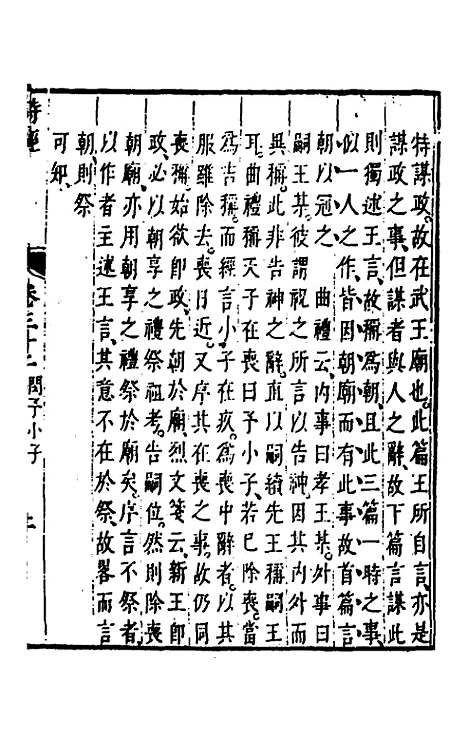 特謀政。故在武王廟也。此篇王所自言。亦是
謀政之事。但謀者與人之辭。故下篇言謀此
則獨述王言。故稱爲朝。且此三篇一時之事。
似一人之作。皆因朝廟而有此事。故首篇言
朝以冠之　曲禮云。内事曰孝王某。外事曰
嗣王某。彼謂祝之所言以告神。因其内外而
異稱。此非告神之辭。直以嗣續先王稱嗣王
耳。曲禮稱天子在喪曰予小子。若已除喪。當
爲吉稱。而經言小子在疚。爲喪中辭者。以其
服雖除去。喪日近。又序其在喪之事。故仍同
喪稱。始欲卽政。先朝於廟。烈文箋云。新王卽
政。必以朝享之禮祭祖考。告嗣位。然則除喪
朝廟。亦用朝享之禮祭於廟矣。序言不祭者。
以作者主述王言。其意不在於祭。故畧而言
朝。則祭
可知。
詩經
卷三十二　閔予小子